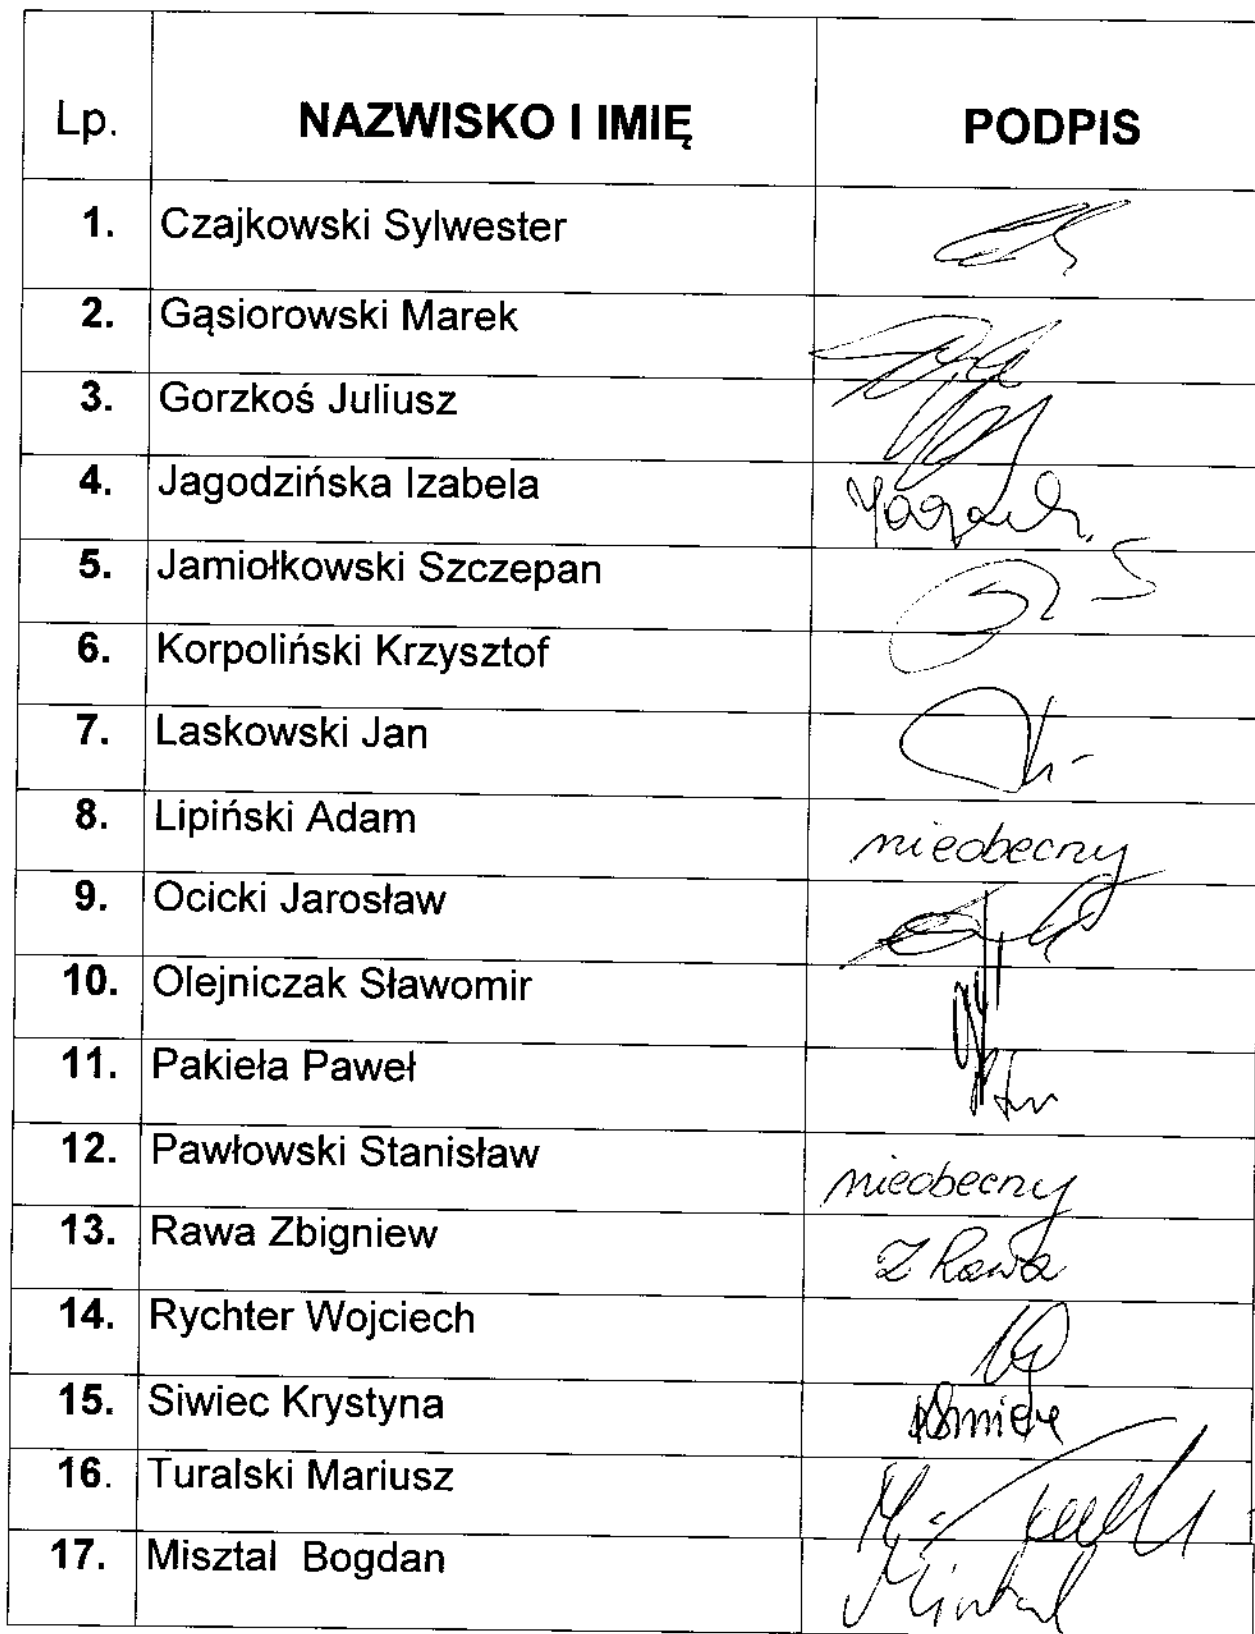 Lp. NAZWISKO I IMIĘ PODPIS
1. Czajkowski Sylwester
2. Gąsiorowski Marek
3. Gorzkoś Juliusz
4. Jagodzińska Izabela
5. Jamiołkowski Szczepan
6. Korpoliński Krzysztof
7. Laskowski Jan
8. Lipiński Adam nieobecny
9. Ocicki Jarosław
10. Olejniczak Sławomir
11. Pakieła Paweł
12. Pawłowski Stanisław nieobecny
13. Rawa Zbigniew Z Rawa
14. Rychter Wojciech
15. Siwiec Krystyna
16. Turalski Mariusz
17. Misztal Bogdan